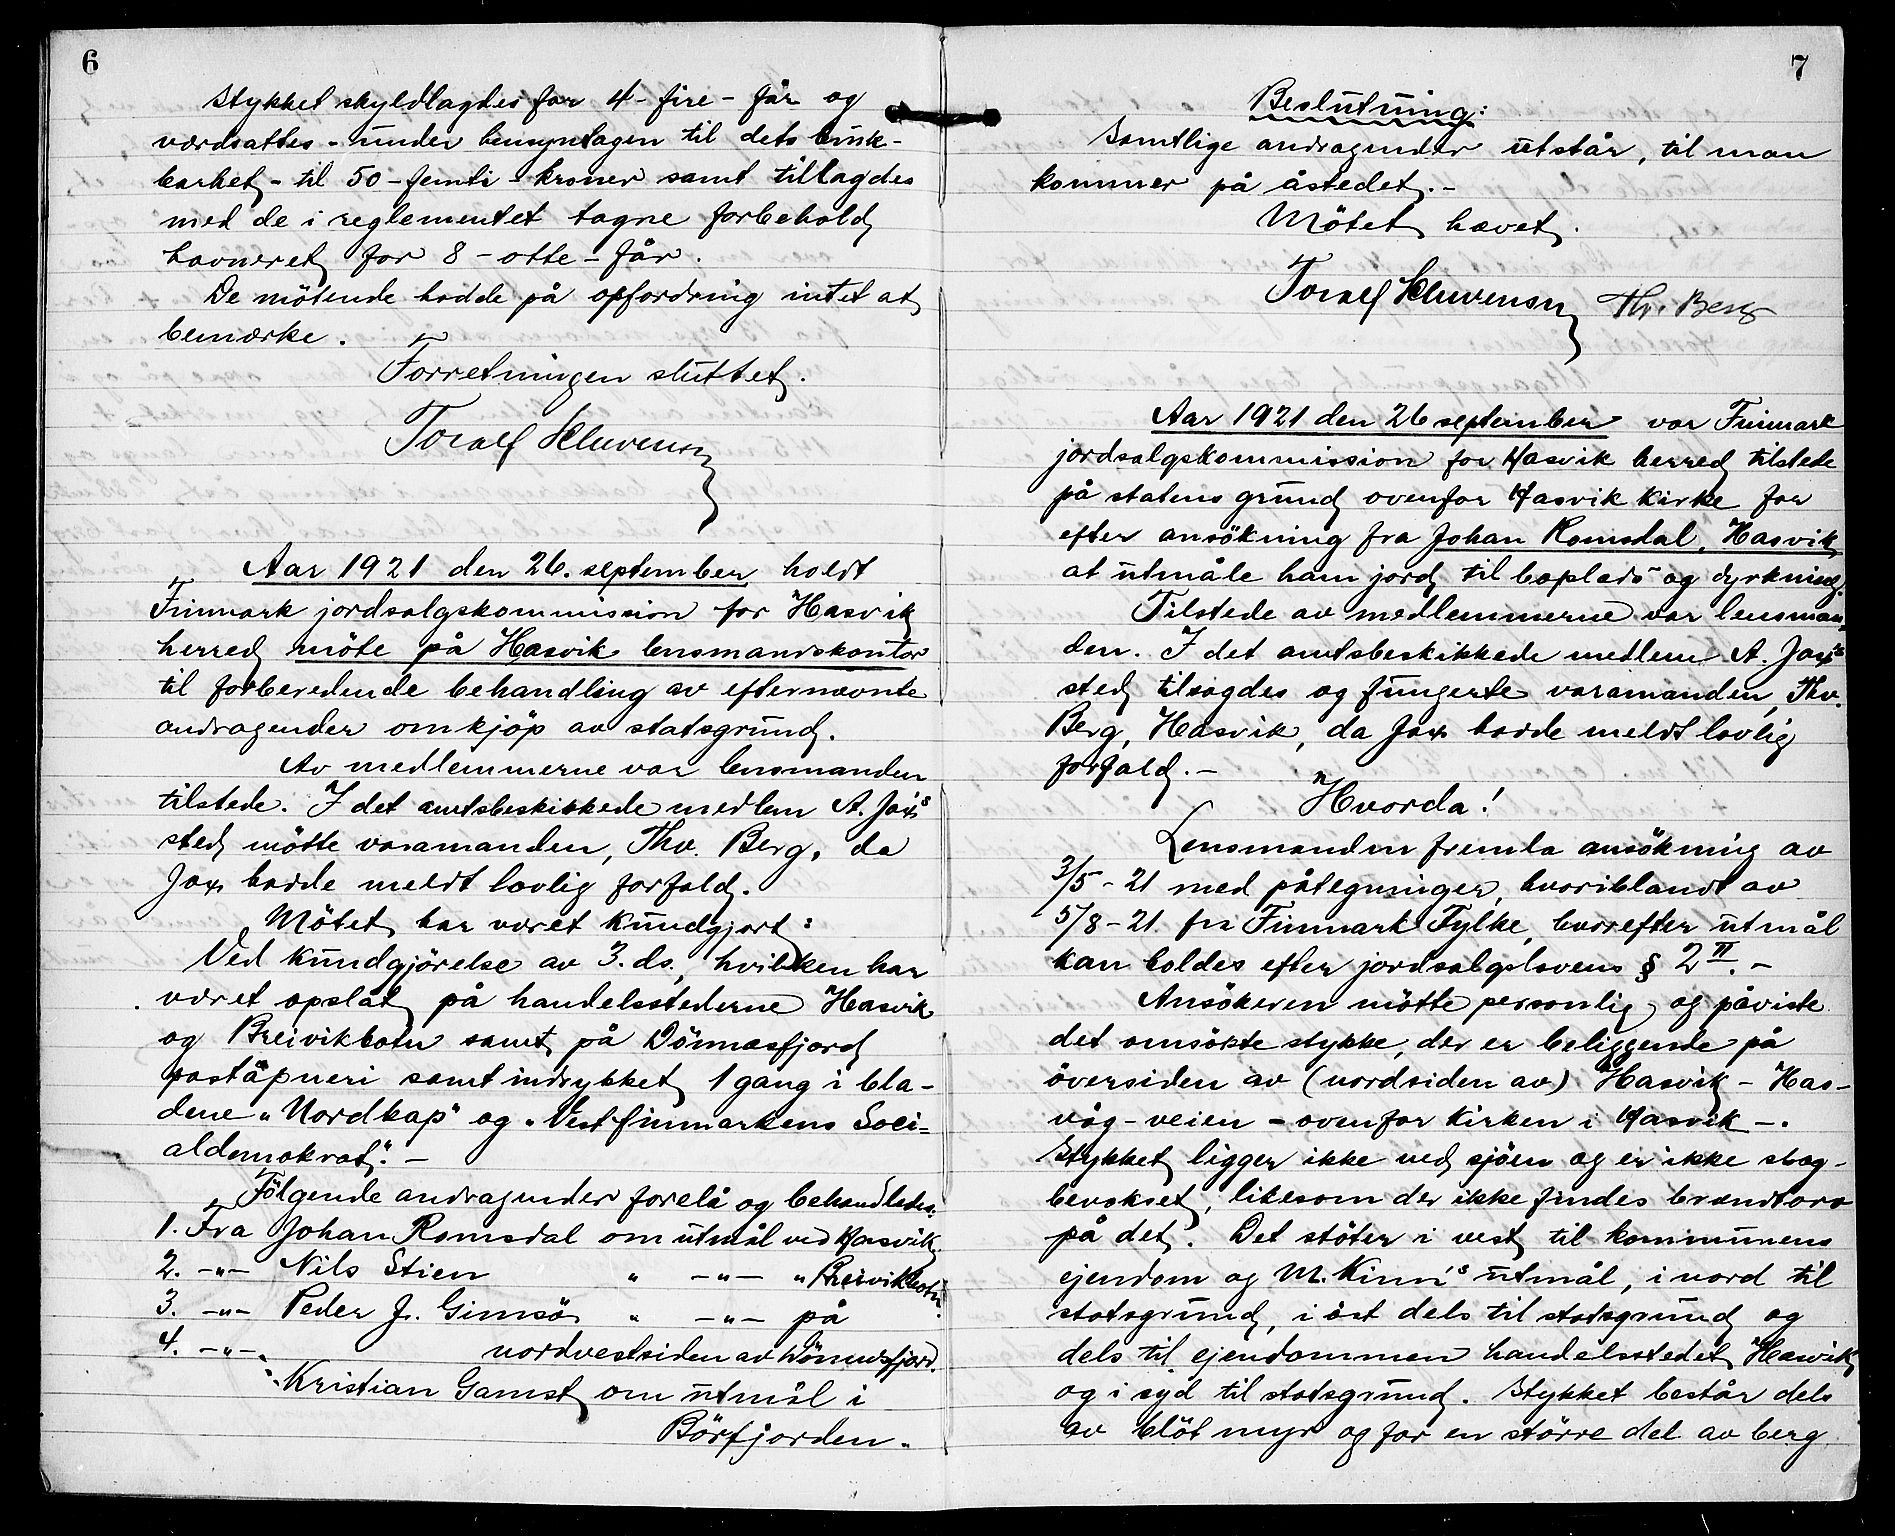 6
Stykket skyldlagdes for 4 - fire - får og
værdsattes - under hensyntagen til dets bruk-
barhet - til 50 - femti - kroner samt tillagdes
med de i reglementet tagne forbehold
havneret for 8 - otte - får.
De møtende hadde på opfordring intet at
bemærke.
Forretningen sluttet.
Toralf
Aar 1921 den 26. september holdt
Finmark jordsalgskommission for Hasvik
herred møte på Hasvik lensmandskontor
til forberedende behandling av efternævnte
andragender om kjøp av statsgrund.
Av medlemmerne var lensmanden
tilstede. I det amtsbeskikkede medlem A. Jax's
sted møtte varamanden, Thv. Berg, da
Jax hadde meldt lovlig forfald.
Møtet har været kundgjort:
Ved kundgjørelse av 3. ds., hvilken har
været opslåt på handelsstederne Hasvik
og Breivikbotn samt på Dönnesfjord
poståpneri samt indrykket 1 gang i bla-
dene "Nordkap" og "Vestfinmarkens Soci=
aldemokrat". -
Følgende andragender forelå og behandledes:
1. Fra Johan Romsdal om utmål ved Hasvik.
2. -"- Nils Stien " -"- " Breivikbotn.
3. -"- Peder J. Gimsö " -"- på
nordvestsiden av Dönnesfjord.
4. -"- Kristian Gamst om utmål i
Börfjorden.
7
Beslutning:
Samtlige andragender utstår, til man
kommer på åstedet. -
Møtet hævet.
Toralf Th. Berg
Aar 1921 den 26 september var Finmark
jordsalgskommission for Hasvik herred tilstede
på statens grund ovenfor Hasvik kirke for
efter ansökning fra Johan Romsdal, Hasvik,
at utmåle ham jord til boplads og dyrkning.
Tilstede av medlemmerne var lensman=
den. I det amtsbeskikkede medlem A. Jax's
sted tilsagdes og fungerte varamanden, Thv.
Berg, Hasvik, da Jax hadde meldt lovlig
forfald. -
Hvorda!
Lensmanden fremla ansökning av
3/5 - 21 med påtegninger, hvoriblandt av
5/8 - 21 fra Finmark Fylke, hvorefter utmål
kan holdes efter jordsalgslovens § 2 II. -
Ansökeren mötte personlig og påviste
det omsökte stykke, der er beliggende på
översiden av (nordsiden av) Hasvik - Has-
våg - veien - ovenfor kirken i Hasvik -.
Stykket ligger ikke ved sjöen og er ikke skog-
bevokset, likesom der ikke findes brændtorv
på det. Det stöter i vest til kommunens
eiendom og M. Kinn's utmål, i nord til
statsgrund, i öst dels til statsgrund og
dels til ejendommen handelsstedet Hasvik
og i syd til statsgrund. Stykket består dels
av blöt myr og for en större del av berg